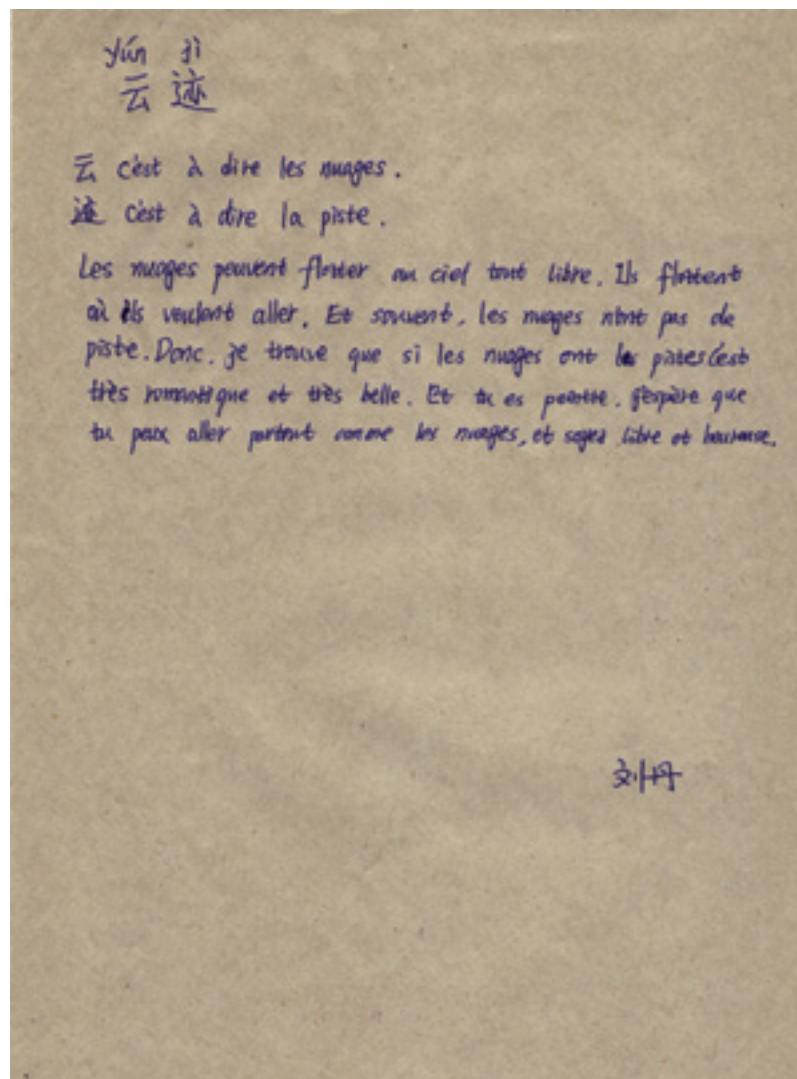 yún jì
云 迹
云 c'est à dire les nuages.
迹 c'est à dire la piste.
Les nuages peuvent flotter au ciel tout libre. Ils flottent
où ils veulent aller. Et souvent, les nuages n'ont pas de
piste. Donc, je trouve que si les nuages ont les pistes c'est
très romantique et très belle. Et tu es peintre. j'espère que
tu peux aller partout comme les nuages, et soyez libre et heureuse.
刘丹